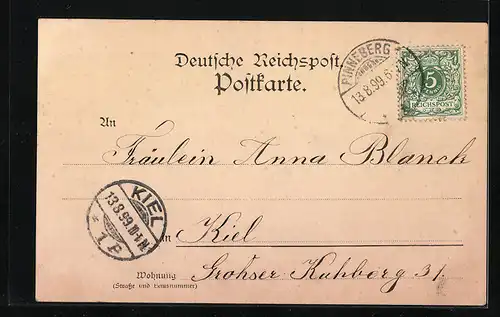 Deutsche Reichspost.
Postkarte.
PINNEBERG
13.8.99.6-
5
REICHSPOST
An
Fräulein Anna Blanck
KIEL
13.8.99.
* 1 P.
in Kiel
Wohnung Grohser Kuhberg 31.
(Straße und Hausnummer)